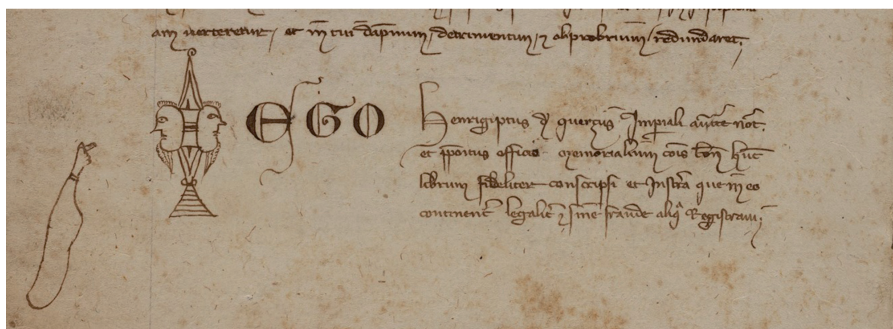 et in tui dapnum, detrimentum, et obprobrium redundaret,
EGO Henrigiptus de querçijs Imperiali auctte not.
et ppoitus officio memorialium cois bon hunc
librum fideliter conscripsi et Instra que in eo
continent legalit et sine fraude aliq Registraui;